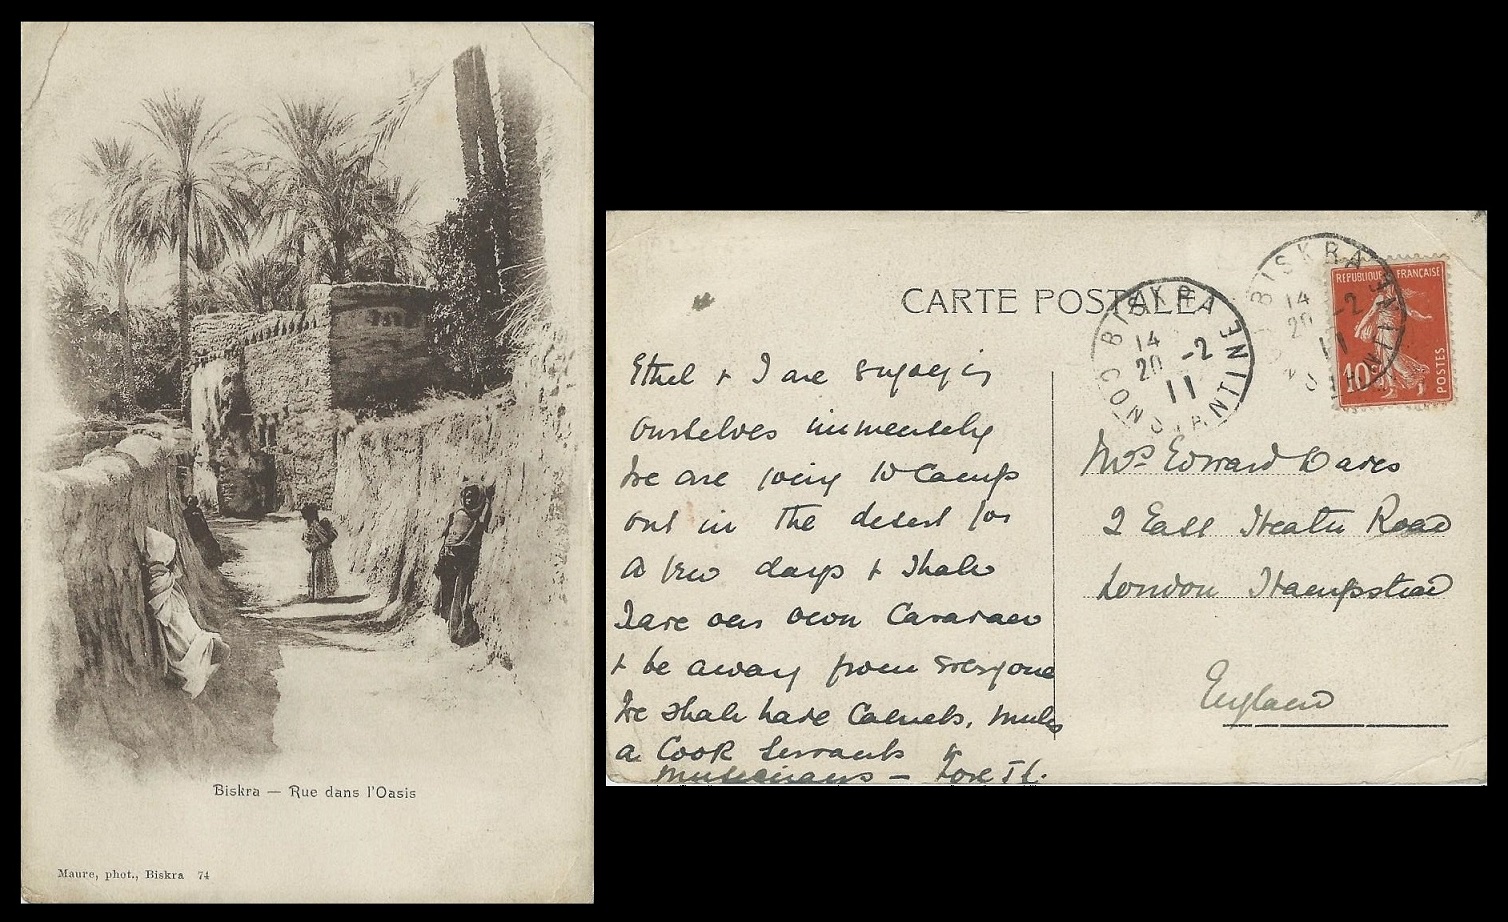 Biskra — Rue dans l'Oasis
Maure, phot., Biskra 74
CARTE POSTALE
BISKRA
14
20 -2
11
CONSTANTINE
BISKRA
14
20 -2
11
CONSTANTINE
REPUBLIQUE FRANÇAISE
10c
POSTES
Ethel & I are enjoying
ourselves immensely
We are going to Camp
out in the desert for
a few days & shall
have our own Caravan
& be away from everyone
We shall have Camels, mules
a Cook Servants &
musicians – Love
Mrs Edward Davis
2 East Heath Road
London Hampstead
England